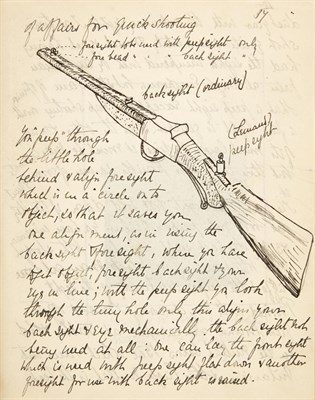 19
of affairs for quick shooting
foresight to be used with peepsight only
fore bead " " back sight "
backsight (ordinary)
(Lyman)
peepsight
You "peep" through
the little hole
behind & align foresight
which is in a circle on to
object, so that it saves you
one alignment, as in using the
backsight & foresight, where you have
to get object, foresight, backsight & your
eye in line; with the peep sight you look
through the tiny hole only, this aligns your
back sight & eye mechanically, the back sight not
being used at all: one can lay the front sight
which is used with peep sight flat down & another
foresight for use with back sight is raised.